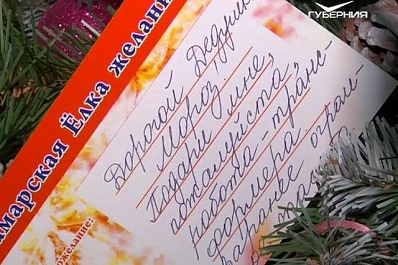 ГУБЕРНИЯ
марская Ёлка желани
Дорогой Дедушк
Мороз,
Подари мне,
пожалуйста,
робота-транс-
формера.
Заранее огром-